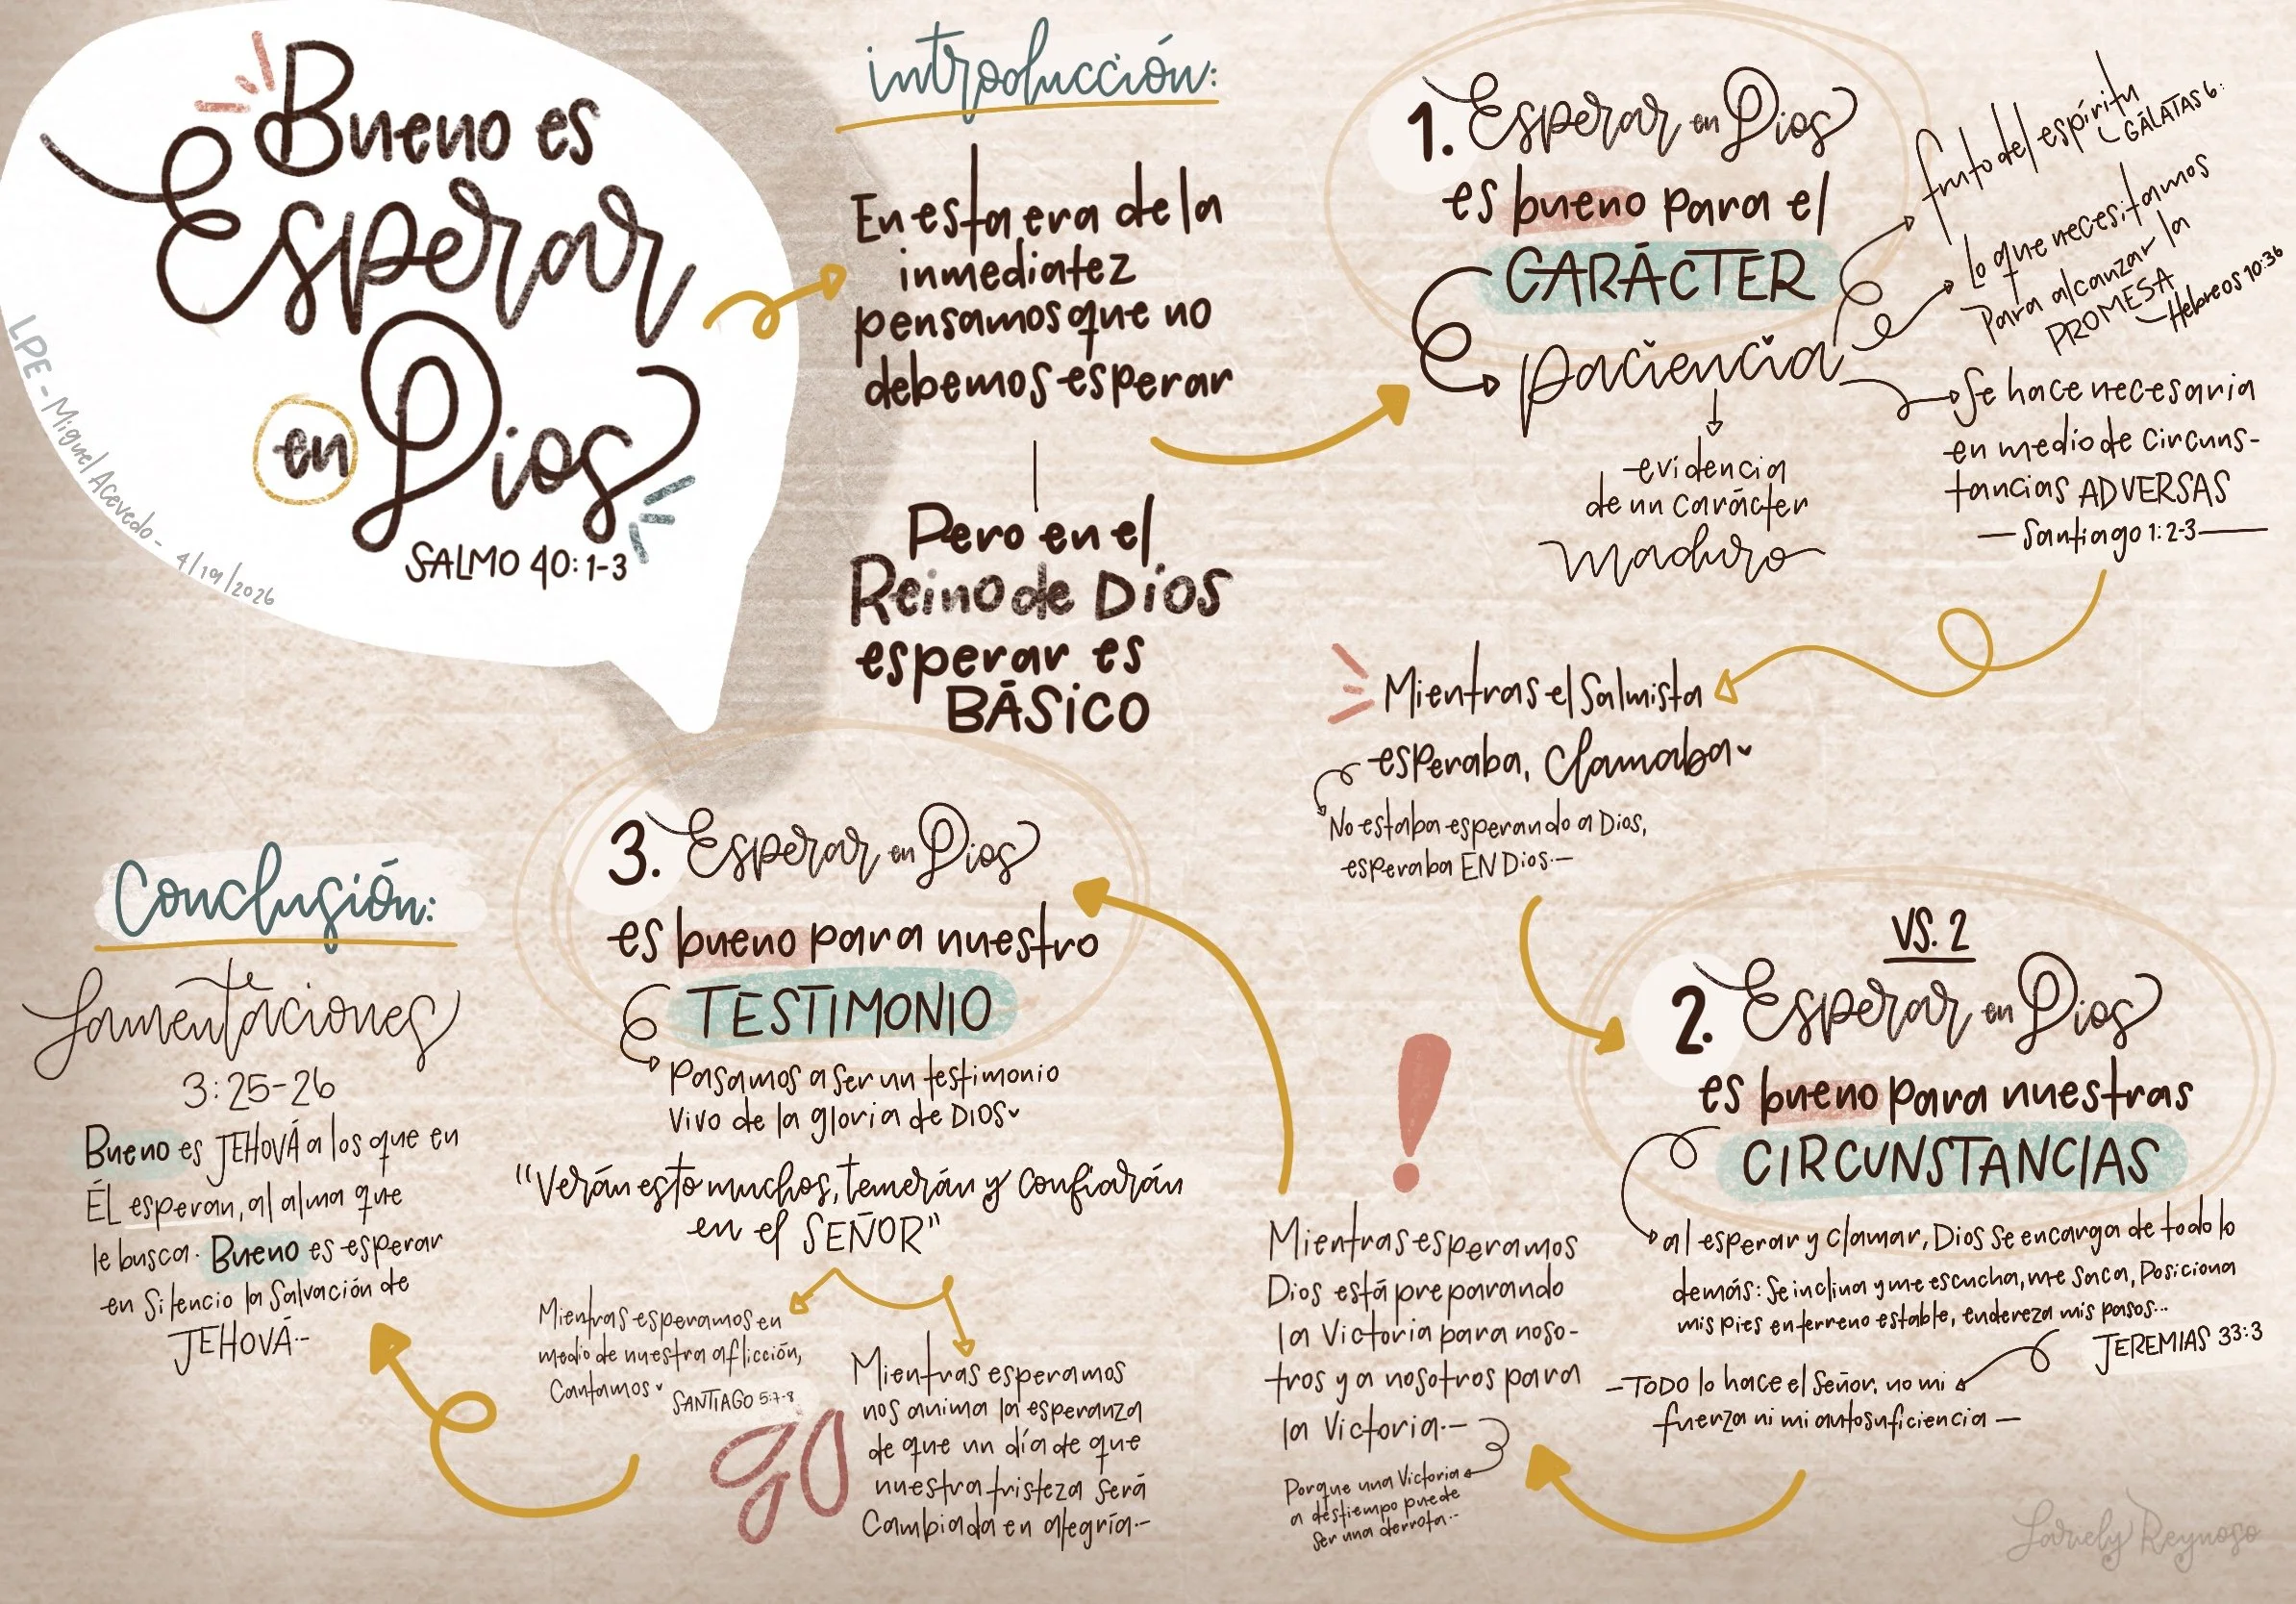 Bueno es
Esperar
en Dios
SALMO 40:1-3
LPE - Miguel Acevedo - 4/19/2026
introducción:
En esta era de la
inmediatez
pensamos que no
debemos esperar
Pero en el
Reino de Dios
esperar es
BÁSICO
1. Esperar en Dios
es bueno para el
CARÁCTER
paciencia
fruto del espíritu
GÁLATAS 6:
Lo que necesitamos
Para alcanzar la
PROMESA
—Hebreos 10:36
Se hace necesaria
en medio de circuns-
tancias ADVERSAS
— Santiago 1:2-3 —
evidencia
de un carácter
maduro
Mientras el Salmista
esperaba, Clamaba
No estaba esperando a Dios,
esperaba EN Dios.—
VS. 2
2. Esperar en Dios
es bueno para nuestras
CIRCUNSTANCIAS
al esperar y clamar, Dios se encarga de todo lo
demás: Se inclina y me escucha, me saca, Posiciona
mis pies en terreno estable, endereza mis pasos...
JEREMIAS 33:3
—TODO lo hace el Señor, no mi
fuerza ni mi autosuficiencia —
!
Mientras esperamos
Dios está preparando
la Victoria para noso-
tros y a nosotros para
la Victoria.—
Porque una Victoria
a destiempo puede
ser una derrota..
3. Esperar en Dios
es bueno para nuestro
TESTIMONIO
Pasamos a ser un testimonio
Vivo de la gloria de DIOS
"Verán esto muchos, temerán y confiarán
en el SEÑOR"
Mientras esperamos en
medio de nuestra aflicción,
Cantamos
SANTIAGO 5:7-8
Mientras esperamos
nos anima la esperanza
de que un día de que
nuestra tristeza será
Cambiada en alegría.—
Conclusión:
Lamentaciones
3:25-26
Bueno es JEHOVÁ a los que en
ÉL esperan, al alma que
le busca. Bueno es esperar
en Silencio la Salvación de
JEHOVÁ.-
Larely Reynoso